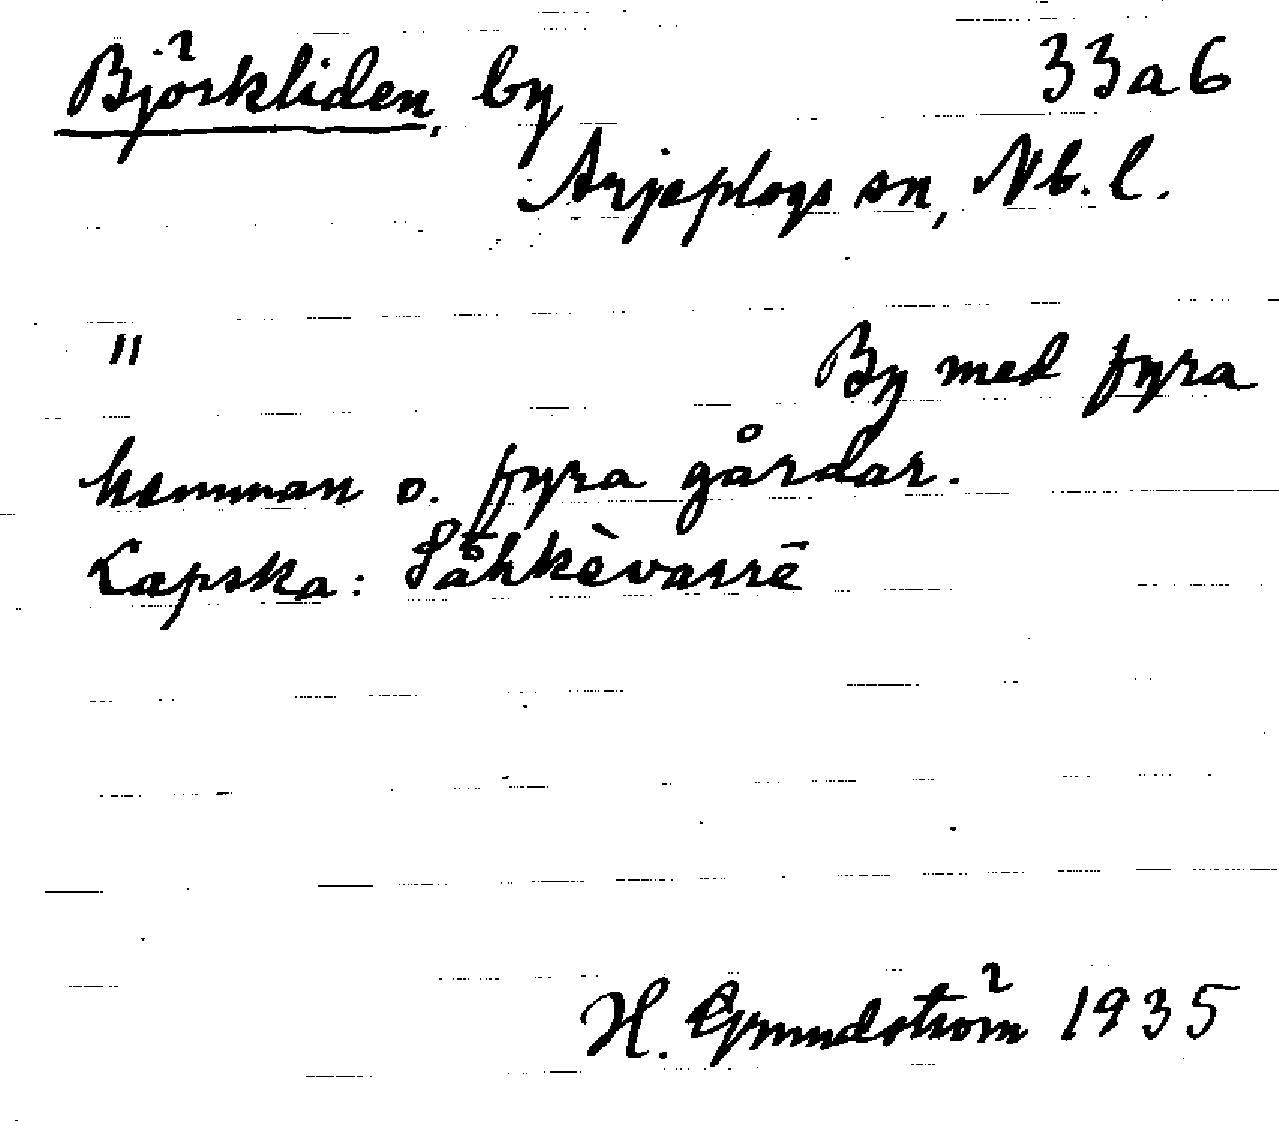 Björkliden, by 33a6
Arjeplogs sn, Nb. l.
" By med fyra
hemman o. fyra gårdar.
Lapska: Såhkèvarrē
H. Grundström 1935